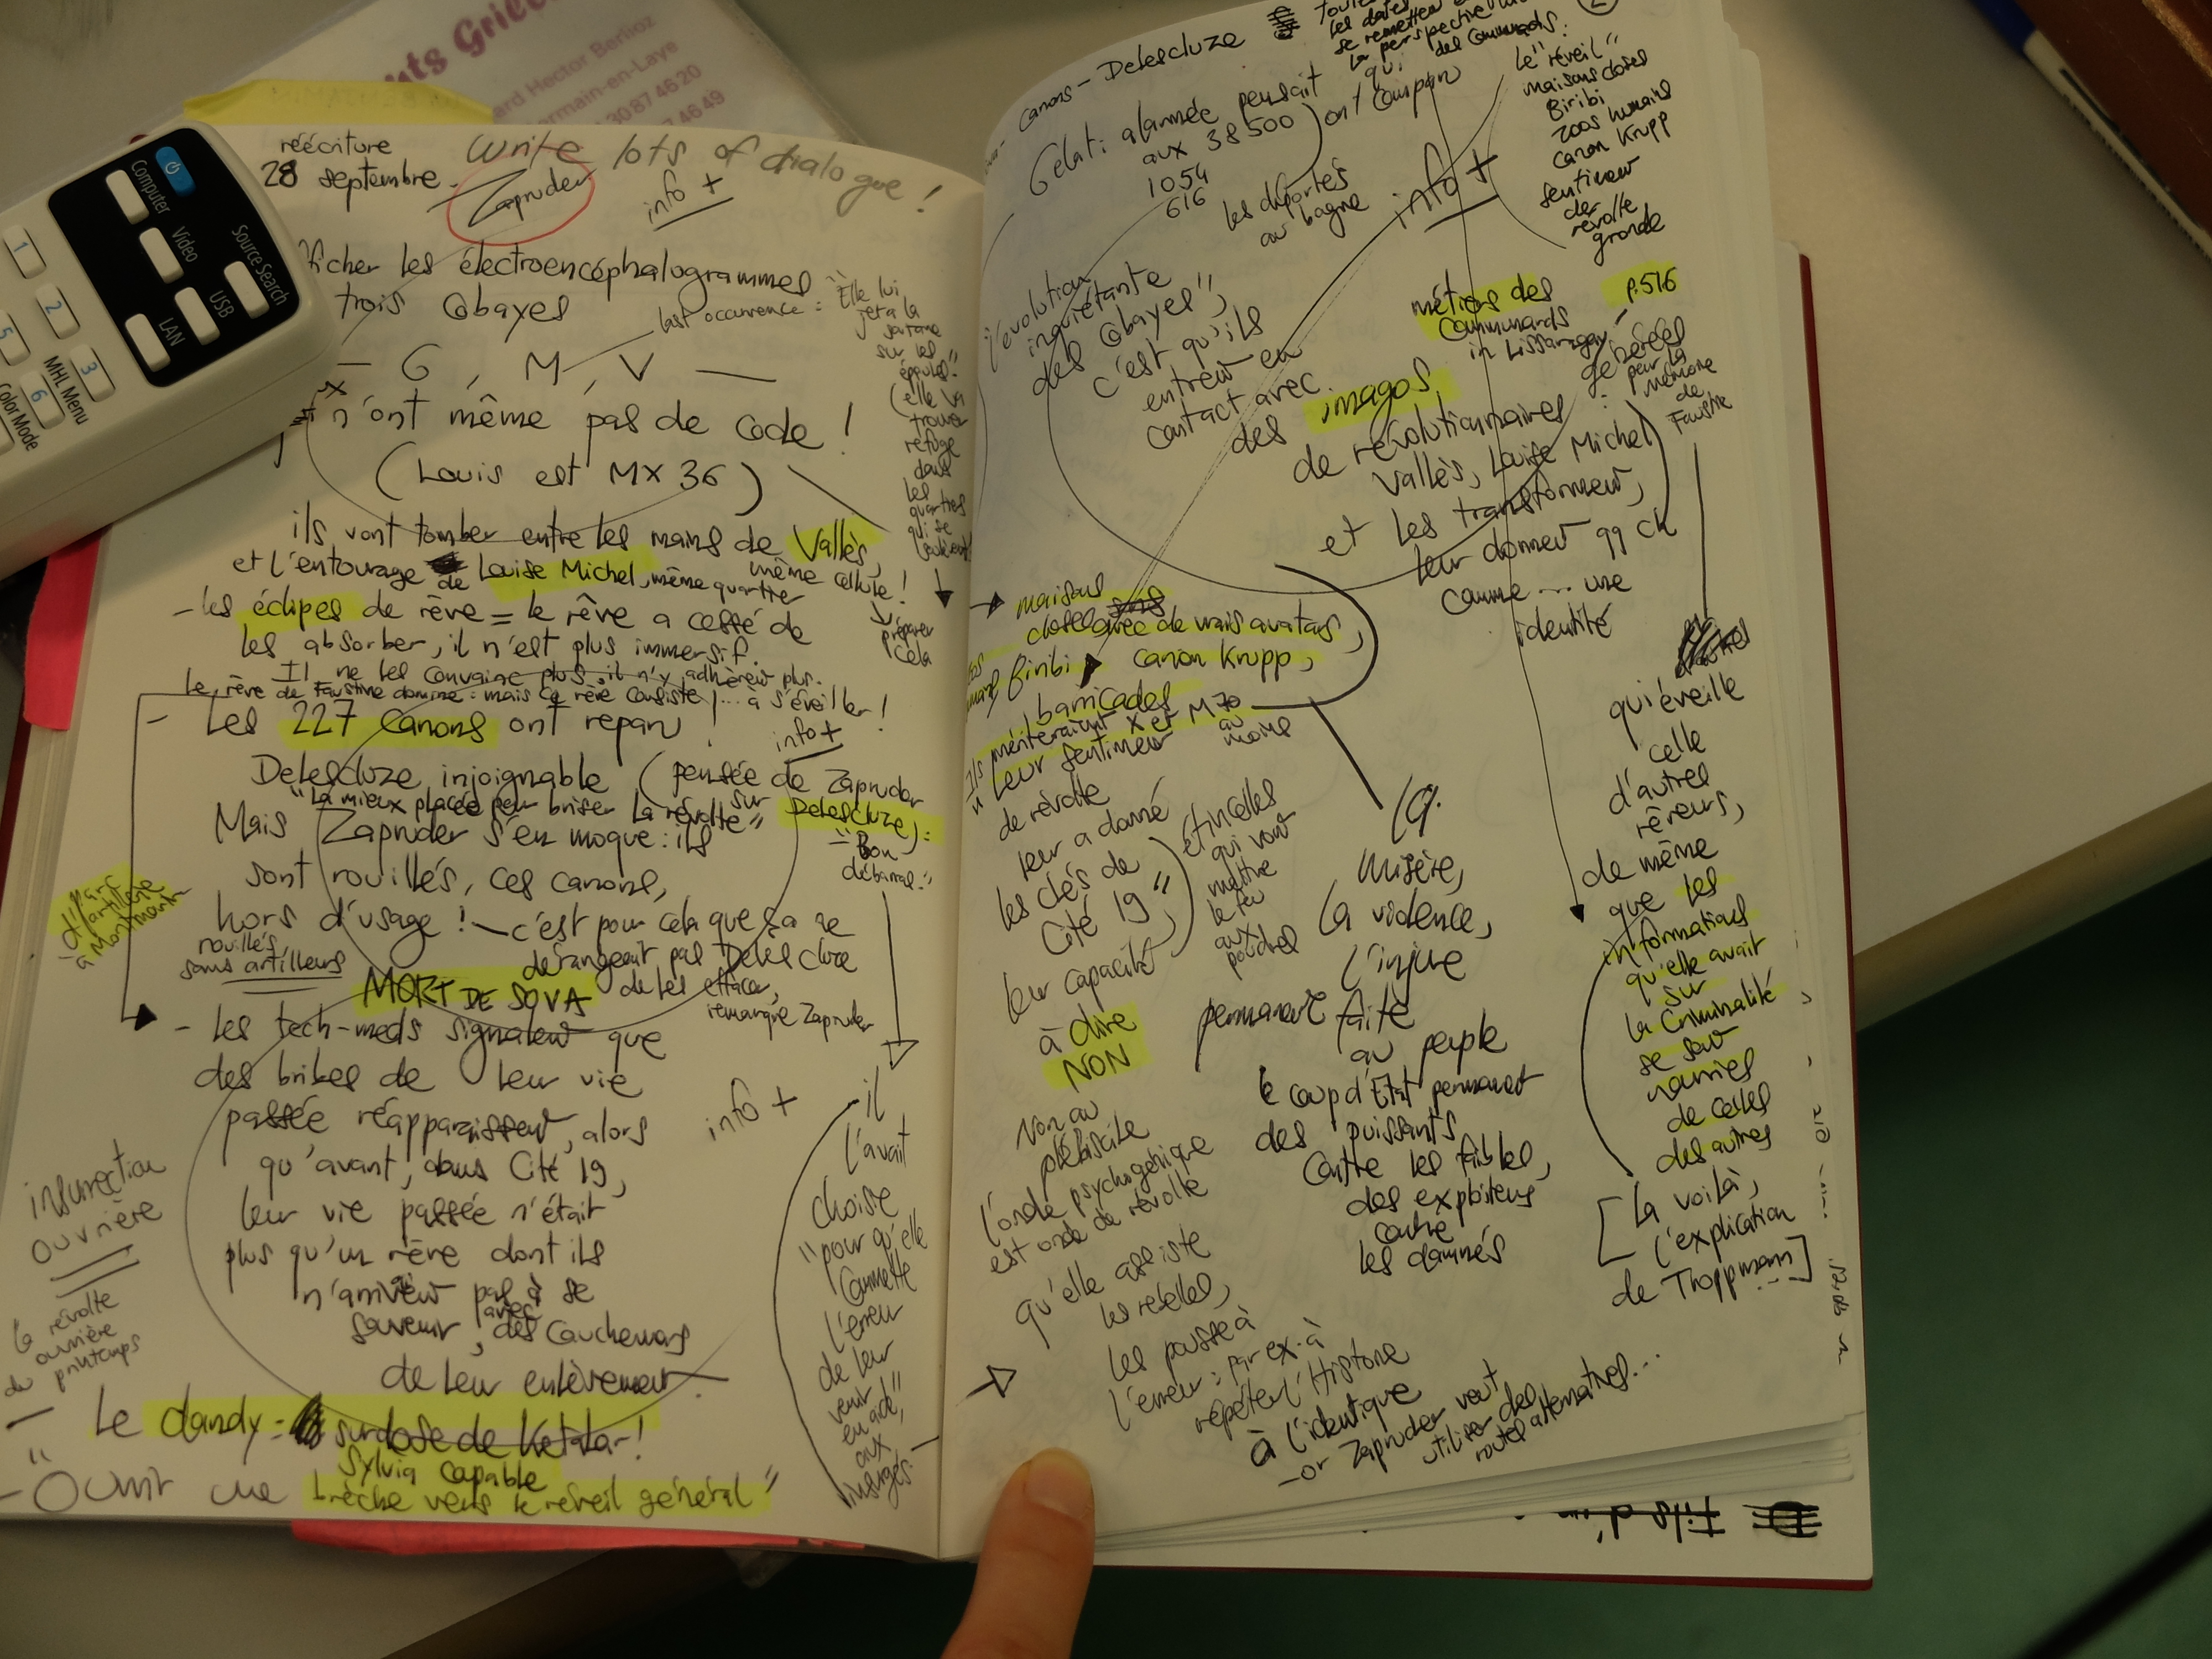 réécriture
28 septembre -
Write lots of dialogue !
Zapruder
info +
ficher les électroencéphalogrammes
trois Cobayes
last occurrence : "Elle lui
jeta la
sur les
épaules."
(elle va
trouver
refuge
dans
les
quartiers
qui se
— G, M, V —
n'ont même pas de code !
(Louis est MX 36)
ils vont tomber entre les mains de Vallès,
même cellule !
et l'entourage de Louise Michel, même quartier
préparer
cela
- les éclipses de rêve = le rêve a cessé de
les absorber, il n'est plus immersif.
Il ne les convainc plus, il n'y adhèrent plus.
le rêve de Faustine domine : mais ce rêve consiste ... à s'éveiller !
- Les 227 canons ont reparu !
info +
Delescluze injoignable (pensée de Zapruder
sur Delescluze) :
"La mieux placée pour briser la révolte"
"Bon
débarras."
Mais Zapruder s'en moque : ils
sont rouillés, ces canons,
hors d'usage ! — c'est pour cela que ça ne
dérangeait pas Delescluze
de les effacer,
remarque Zapruder
Parc
d'artillerie
à Montmartre
rouillés,
sans artilleurs
MORT DE SOVA
- les tech-meds signalent que
des bribes de leur vie
passée réapparaissent, alors
qu'avant, dans Cité 19,
leur vie passée n'était
plus qu'un rêve dont ils
n'arrivaient pas à se
souvenir, avec des cauchemars
de leur enlèvement -
info +
il
l'avait
choisie
"pour qu'elle
commette
l'erreur
de leur
venir
en aide",
aux
insurgés.
insurrection
ouvrière
la révolte
ouvrière
du printemps
- Le dandy = surdose de Ketalar !
Sylvia capable
- "Ouvrir une brèche vers le réveil général"
Canons - Delescluze
les dates
se remettent
la perspective
des Communards.
qui
ont comparu
Gelati alarmée pensait
aux 38 500
1054
616
les déportés
au bagne
info +
le "réveil"
maisons closes
Biribi
zoos humains
canon Krupp
sentiment
de
révolte
gronde
"l'évolution
inquiétante
des Cobayes",
c'est qu'ils
entrent en
contact avec
des imagos
de révolutionnaires
Vallès, Louise Michel
et les transforment,
leur donnent qq ch
comme ... une
identité
métiers des
Communards
in Lissagaray
p.516
générées
par la
mémoire
de
Faustine
qui éveille
celle
d'autres
rêveurs,
de même
que les
informations
qu'elle avait
sur
la criminalité
se sont
nourries
de celles
des autres
[la voilà,
l'explication
de Troppmann]
maisons
closes avec de vrais avatars,
Biribi
canon Krupp,
barricades
Ils mériteraient X et M 70
au
moins
"Leur sentiment
de révolte
leur a donné
les clés de
Cité 19"
leur capacité
à dire
NON
étincelles
qui vont
mettre
le feu
aux
poudres
Non au
plébiscite
l'onde psychogénique
est onde de révolte
qu'elle assiste
les rebelles,
les pousse à
l'erreur : par ex. à
répéter l'Histoire
à l'identique
- or Zapruder veut
utiliser des
routes alternatives...
la
misère,
la violence,
l'injure
permanente faite
au peuple
le coup d'Etat permanent
des puissants
contre les faibles,
des exploiteurs
contre
les damnés
Hector Berlioz
ermain-en-Laye
30 87 46 20
46 49
Computer
Video
Source Search
USB
LAN
MHL Menu
Color Mode
1
2
3
5
6